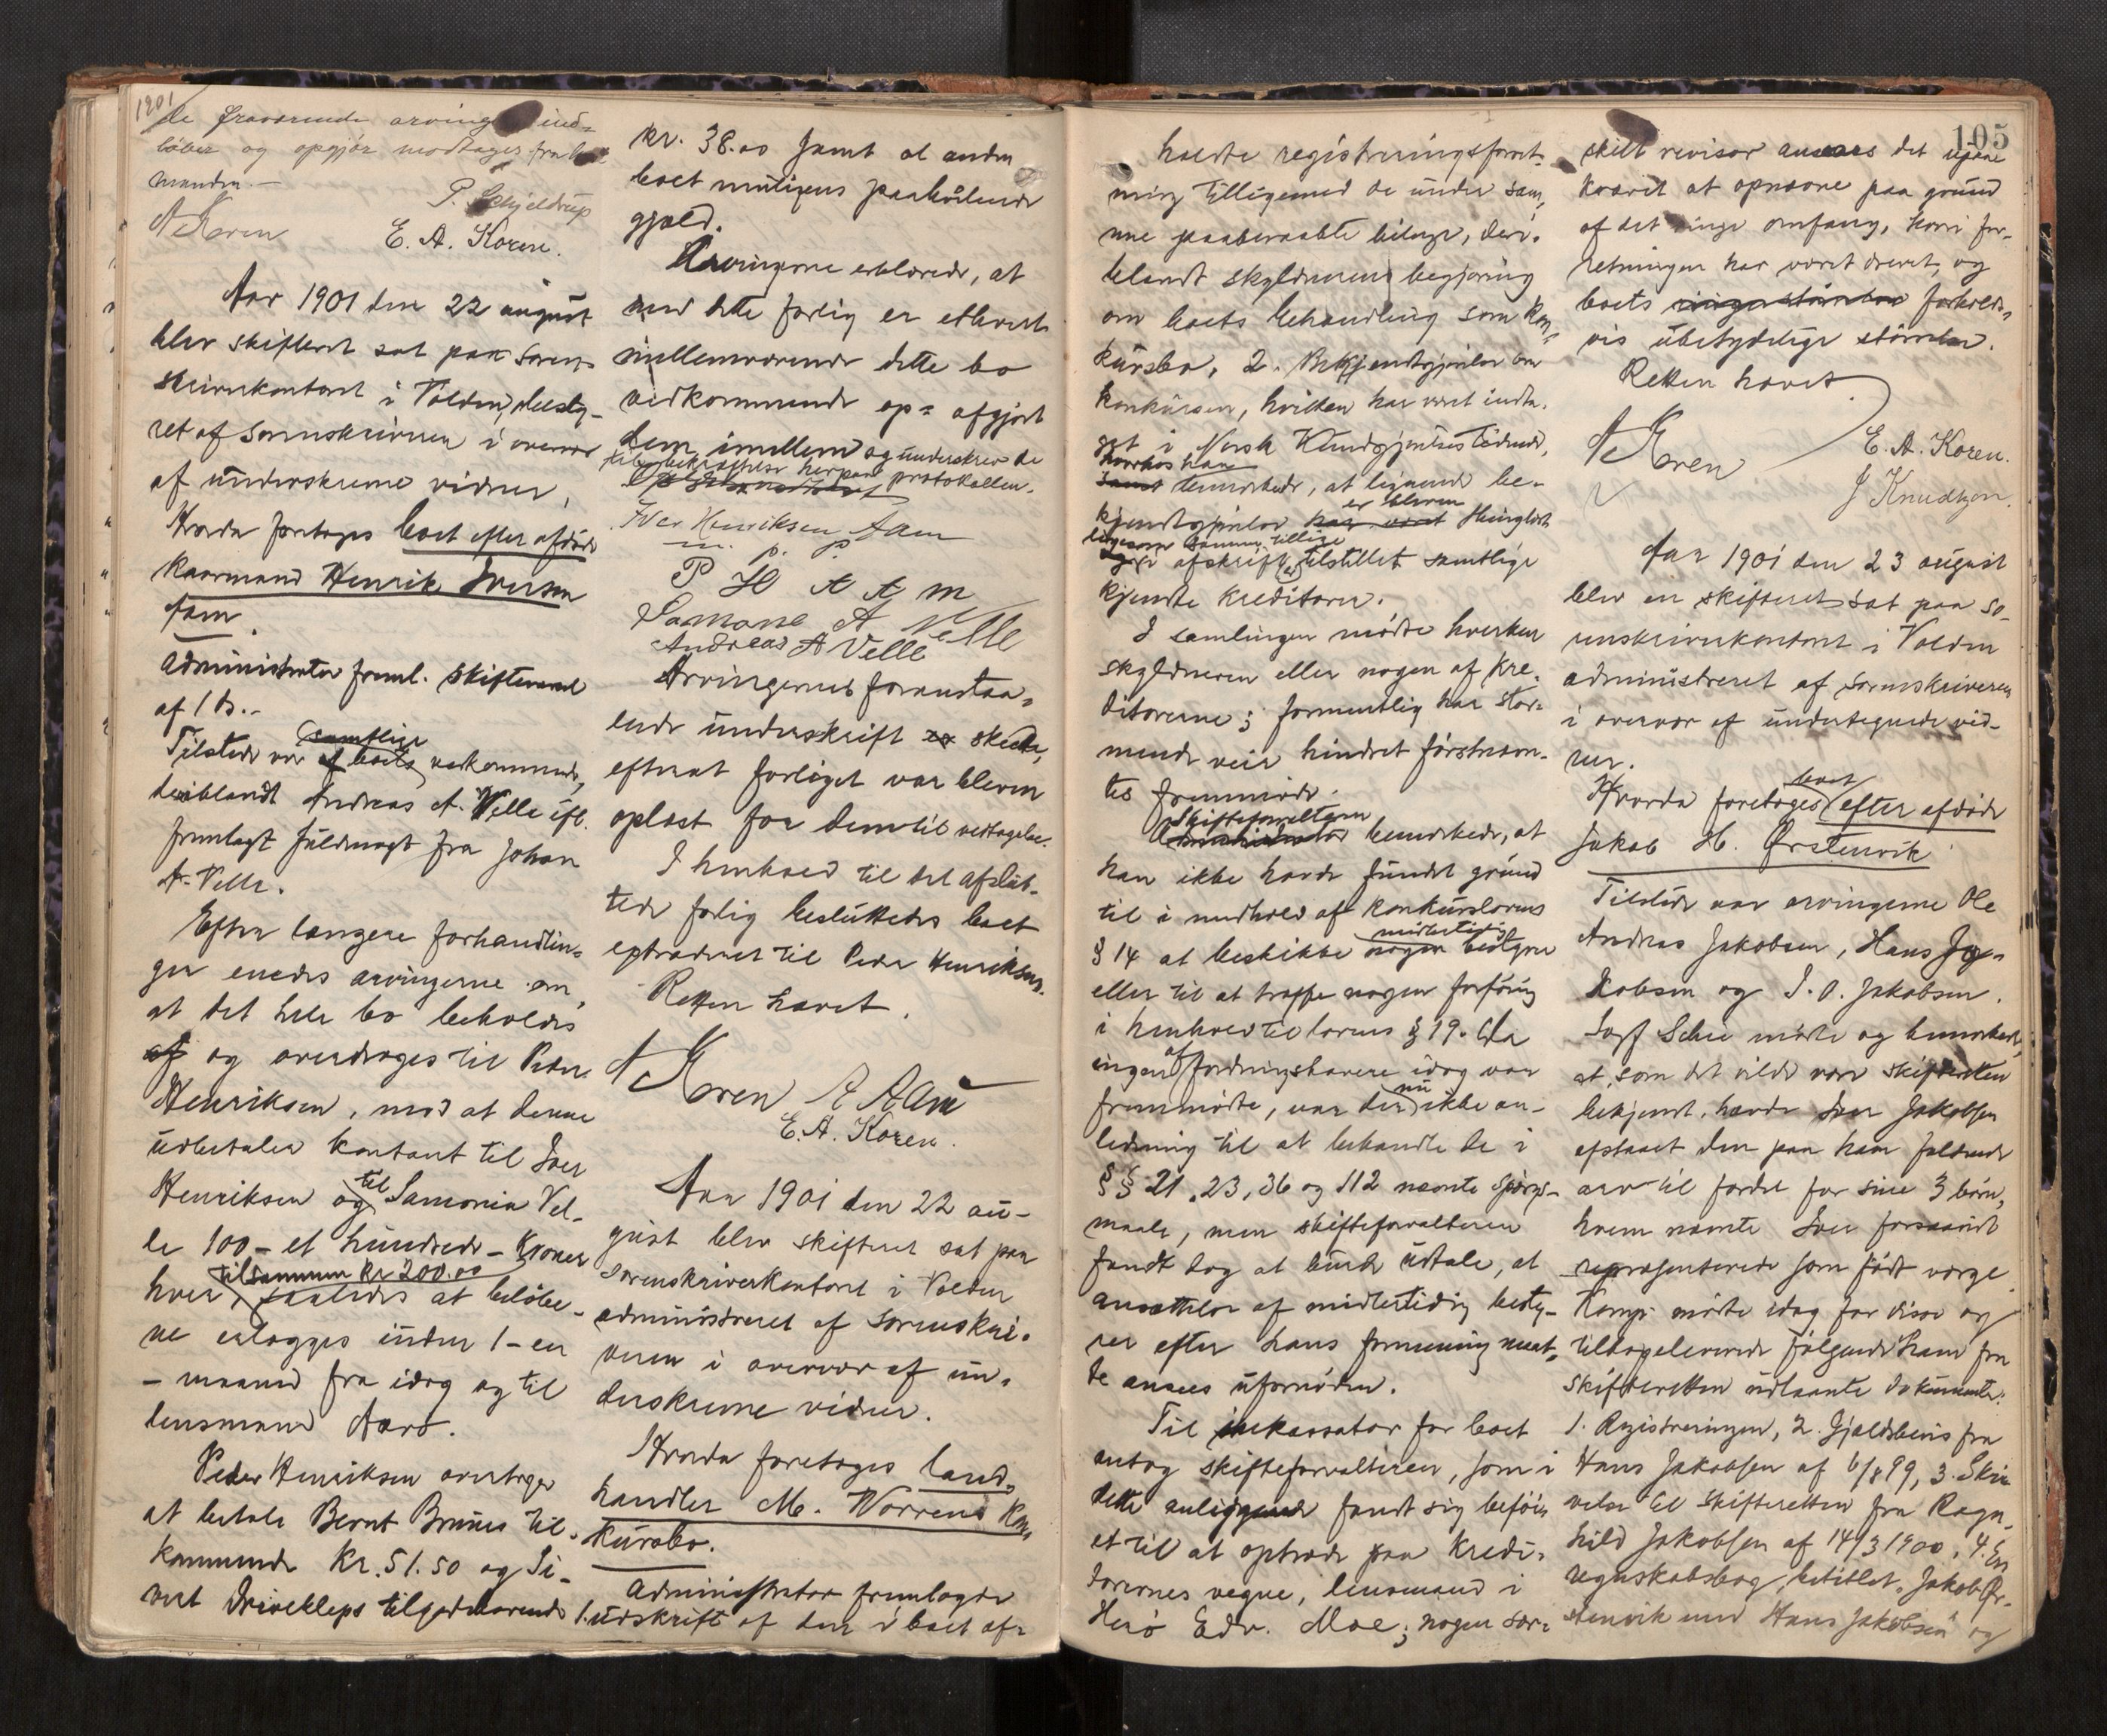 1901
de fraværende arvinger ind-
løber og opgjør modtages fra
manden.-
P. Schjeldrup
A Koren
E. A. Koren.
Aar 1901 den 22 august
blev skifteret sat paa soren-
skriverkontoret i Volden, besty-
ret af sorenskriveren i overvær
af underskrevne vidner,
Hvorda foretoges boet efter afdøde
kaarmand Henrik Iversen
Aam.
Administrator freml. skiftevarsel
af 1 ds.-
samtlige
Tilstede var af boets vedkommende,
deriblandt Andreas A. Velle ifl.
fremlagt fuldmagt fra Johan
A. Velle.
Efter længere forhandlin-
ger enedes arvingerne om,
at det hele bo beholdes
af og overdrages til Peder
Henriksen, mod at denne
udbetaler kontant til Iver
til
Henriksen og Samonia Vel-
le 100 - et hundrede - kroner
tilsammen kr 200.00
hver, saaledes at beløbe-
ne erlægges inden 1 - en
- maaned fra idag og til
lensmand Aarø.
Peder Henriksen overtager
at betale Bernt Brunes til-
kommende kr. 51.50 og Si-
vert Drivekleps tilgodehavende
kr. 38.00 samt al anden
boet muligens paahvilende
gjæld.
Arvingerne erklærede, at
med dette forlig er ethvert
mellemværende dette bo
vedkommende op- afgjort
dem imellem og underskrev de
til bekræftelse herpaa protokollen.
Iver Henriksen Aam
m. p. p.
P H A A M
Samone A Velle
Andreas A Velle
Arvingernes foranstaa-
ende underskrift er skede,
efterat forliget var bleven
oplæst for dem til vedtagelse.
I henhold til det afslut-
tede forlig besluttedes boet
extraderet til Peder Henriksen.
Retten hævet.
A Koren A Aam
E. A. Koren.
Aar 1901 den 22 au-
gust blev skifteret sat paa
sorenskriverkontoret i Volden
administreret af sorenskri-
veren i overvær af un-
derskrevne vidner.
Hvorda foretoges land-
handler M. Worrens kon-
kursbo.
Administrator fremlagde
1. udskrift af den i boet af-
105
holdte registreringsforret-
ning tilligemed de under sam-
me paaberaabte bilage, deri-
blandt skyldnerens begjæring
om boets behandling som kon-
kursbo, 2. Bekjendtgjørelse om
konkursen, hvilken har været indta-
get i Norsk Kundgjørelsestidende,
hvorhos han
samt bemærkede, at lignende be-
er bleven
kjendtgjørelse har været thinglæst
ligesom samme tillige
og i afskrift er tilstillet samtlige
kjendte kreditorer.
I samlingen mødte hverken
skyldneren eller nogen af kre-
ditorerne; formentlig har stor-
mende veir hindret førstnævn-
tes fremmøde.
Skifteforvalteren
Administrator bemærkede, at
han ikke havde fundet grund
til i medhold af konkurslovens
midlertidig
§ 14 at beskikke nogen bestyrer
eller til at træffe nogen forføining
i henhold til lovens § 19. Da
af
ingen fordringshavere idag var
nu
fremmødte, var der ikke an-
ledning til at behandle de i
§§ 21, 23, 36 og 112 nævnte spørgs-
maale, men skifteforvalteren
fandt dog at burde udtale, at
ansættelse af midlertidig besty-
rer efter hans formening maat-
te ansees ufornøden.
Til inkassator for boet
antog skifteforvalteren, som i
dette anliggende fandt sig beføi-
et til at optræde paa kredi-
torernes vegne, lensmand i
Herø Edv. Moe; nogen sær-
skilt revisor ansaaes det upaa-
krævet at opnævne paa grund
af det ringe omfang, hvori for-
retningen har været drevet, og
boets ringe størrelse forholds-
vis ubetydelige størrelse.
Retten hævet.
A Koren
E. A. Koren.
J Knudtzon.
Aar 1901 den 23 august
blev en skifteret sat paa so-
renskriverkontoret i Volden
administreret af sorenskriveren
i overvær af undertegnede vid-
ner.
boet
Hvorda foretoges efter afdøde
Jakob H. Ørstenvik
Tilstede var arvingerne Ole
Andreas Jakobsen, Hans Ja-
kobsen og I. O. Jakobsen.
Sagf Schie mødte og bemærkede,
at, som det vilde være skifteretten
bekjendt, havde Iver Jakobsen
afstaaet den paa ham faldende
arv til fordel for sine 3 børn,
hvem nævnte Iver forsaavidt
repræsenterede som født værge.
Komp. mødte idag for disse og
tilbageleverede følgende ham fra
skifteretten udlaante dokumenter:
1. Registreringen, 2. Gjældsbevis fra
Hans Jakobsen af 6/8 99, 3. Skri-
velse til skifteretten fra Ragn-
hild Jakobsen af 14/3 1900, 4. En
regnskabsbog, betitlet "Jakob Ør-
stenvik med Hans Jakobsen" og